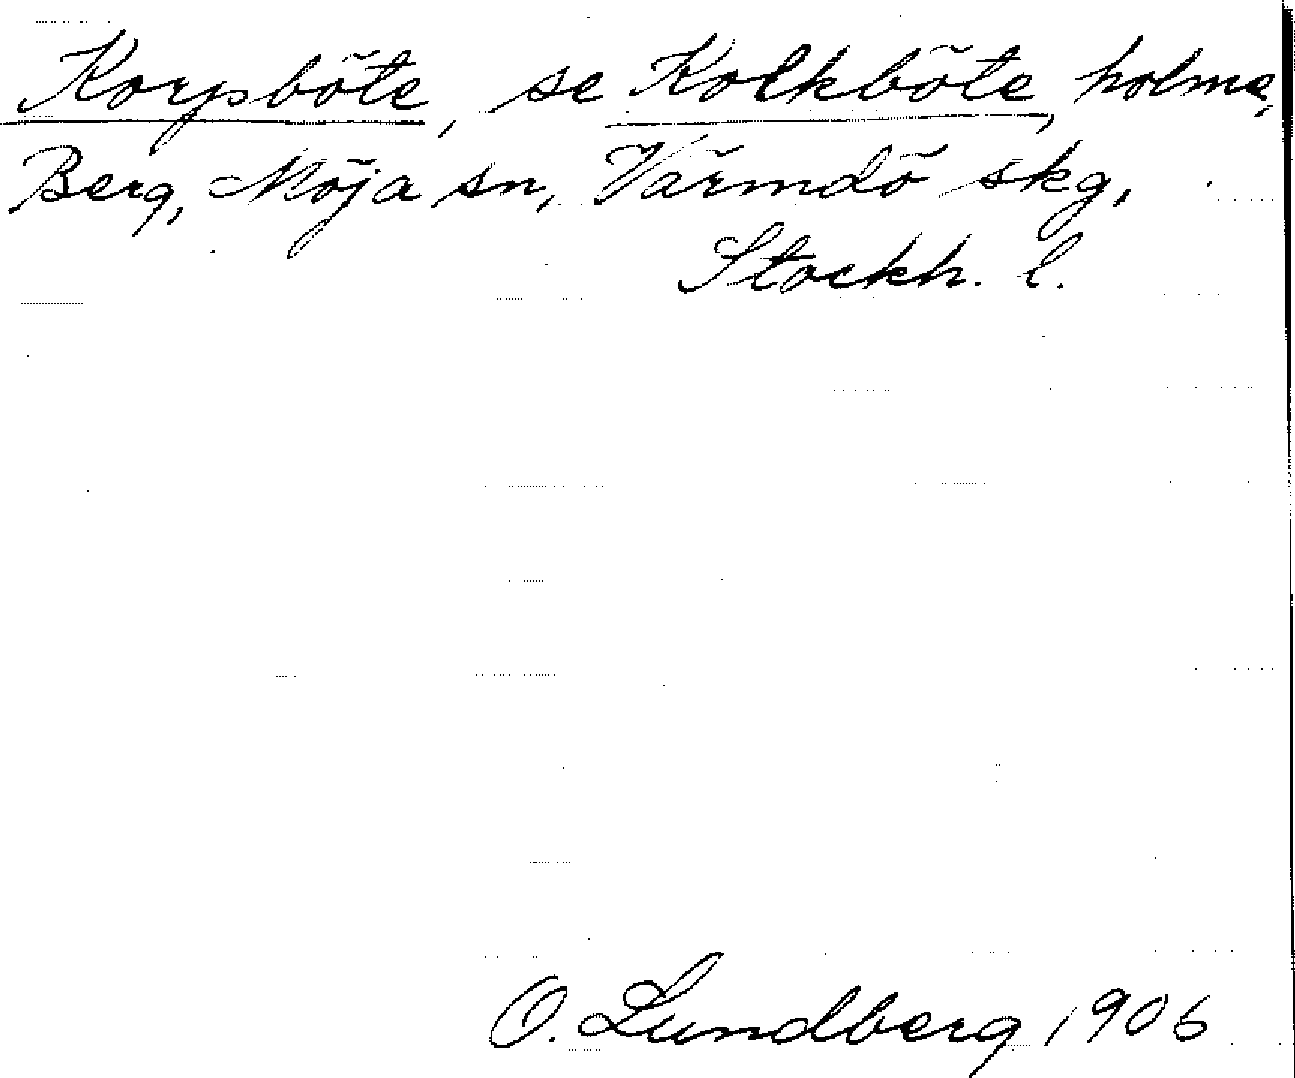 Korpsböte, se Kolkböte, holme,
Berg, Möja sn, Värmdö skg,
Stockh. l.
O. Lundberg 1906